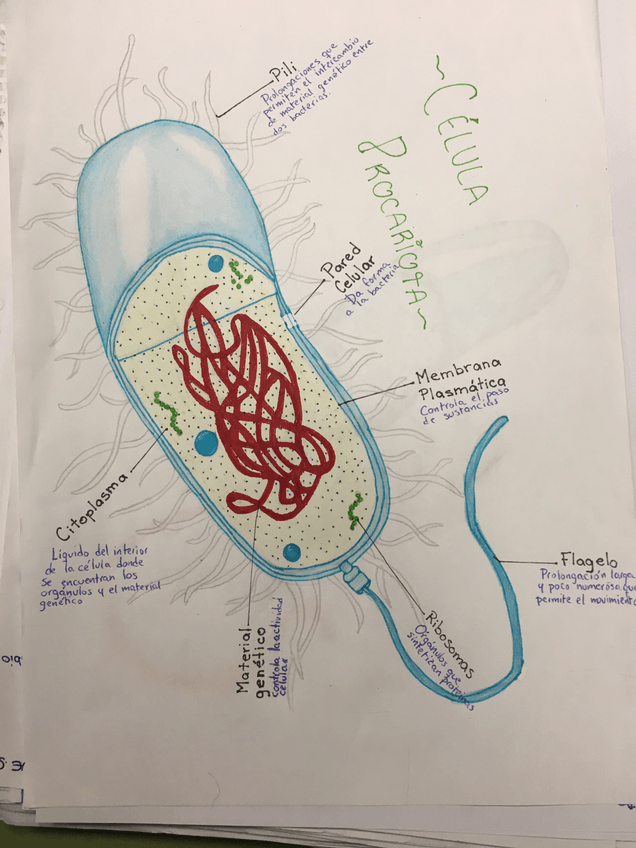 ~CÉLULA
PROCARIOTA~
Pili
Prolongaciones que
permiten el intercambio
de material genético entre
dos bacterias.
Pared
Celular
Da forma
a la bacteria
Membrana
Plasmática
Controla el paso
de sustancias
Citoplasma
Líquido del interior
de la célula donde
se encuentran los
orgánulos y el material
genético
Flagelo
Prolongación larga
y poco numerosa que
permite el movimiento
Ribosomas
Orgánulos que
sintetizan proteínas
Material
genético
Controla la actividad
celular